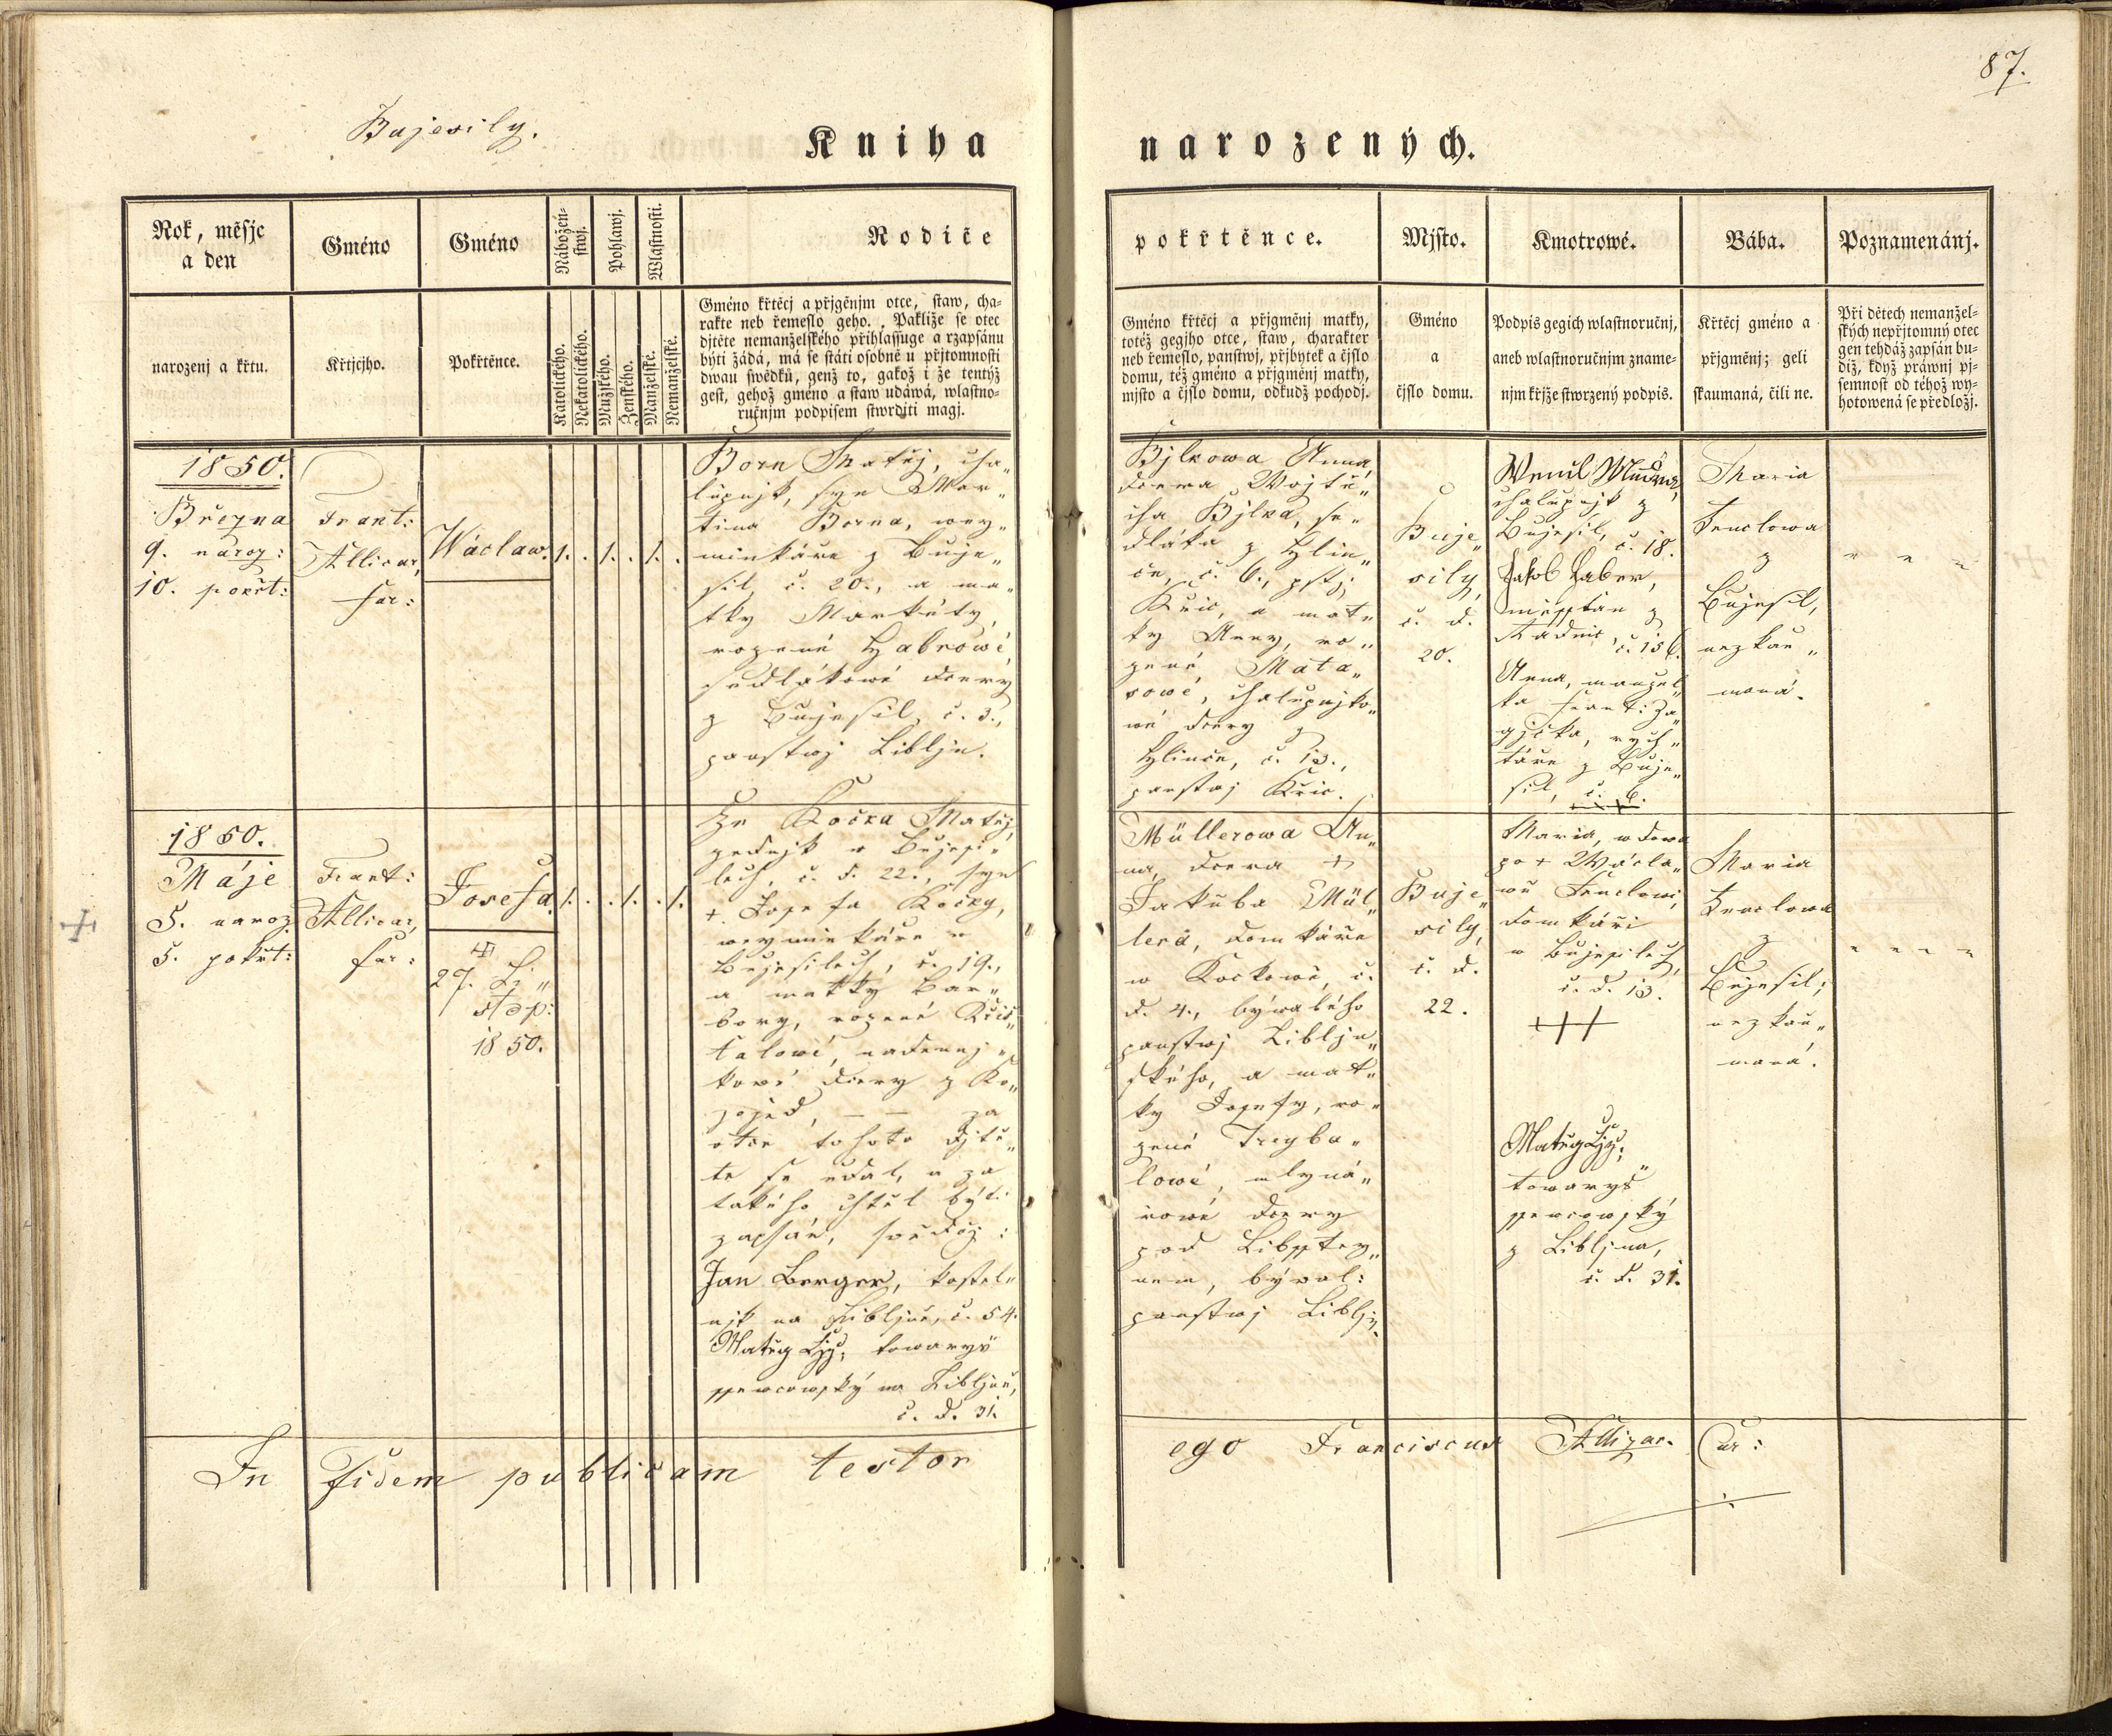 87.
Bujesily.
Kniha
narozených.
Rok, měsjc
a den
narozenj a křtu.
Gméno
Křtjcjho.
Gméno
Pokřtěnce.
Nábožen-
stwj.
Katolického.
Nekatolického.
Pohlawj.
Mužského.
Ženského.
Wlastnosti.
Manželské.
Nemanželské.
Rodiče
Gméno křtěcj a přjgěnjm otce, staw, cha-
rakte neb řemeslo geho. Pakliže se otec
djtěte nemanželského přihlassuge a rzapsánu
býti žádá, má se státi osobně u přjtomnosti
dwau swědků, genž to, gakož i že tentýž
gest, gehož gméno a staw udáwá, wlastno-
ručnjm podpisem stwrditi magj.
pokřtěnce.
Gméno křtěcj a přjgměnj matky,
totéž gegjho otce, staw, charakter
neb řemeslo, panstwj, přjbytek a čjslo
domu, též gméno a přjgměnj matky,
mjsto a čjslo domu, odkudž pochodj.
Mjsto.
Gméno
a
čjslo domu.
Kmotrowé.
Podpis gegich wlastnoručnj,
aneb wlastnoručnjm zname-
njm křjže stwrzený podpis.
Bába.
Křtěcj gméno a
přjgměnj; geli
skaumaná, čili ne.
Poznamenánj.
Při dětech nemanžel-
ských nepřjtomný otec
gen tehdáž zapsán bu-
diž, když práwnj pj-
semnost od téhož wy-
hotowená se předložj.
1850.
Března
9. naroz:
10. pokřt:
Frant:
Allicar,
far:
Wáclaw.
1. . 1. . 1. .
Born Matěj, cha„
lupnjk, syn Mar„
tina Borna, wey„
minkáře z Buje„
sil, č. 20., a ma„
tky Markéty,
rozené Habrowé,
sedlákowé dcery
z Bujesil, č. 3.,
panstwj Libljn.
Bjlkowa Anna,
dcera Wojtě„
cha Bjlka, se„
dláka z Hlin„
če, č. 6., pstj
Křic, a mat„
ky Anny, ro„
zené Mata„
sowé, chalupnjko„
wé dcery z
Hlince, č. 13.,
panstwj Křic.
Buje„
sily,
č. d.
20.
chalupnjk z
Bujesil, č. 18.
Jakob Haber,
měsstan z
Radnic, č. 156.
Anna, manžel„
ka Frant: Za„
gjčka, rych„
táře z Buje„
sil, č. 6.
+++
Maria
Fenclowa
z
Bujesil,
nezkau„
maná.
" " "
1850.
Máje
5. naroz:
5. pokřt:
Frant:
Allicar,
far:
Josefa.
27. Li„
stop:
1850.
1. . . 1. . 1.
Že Kočka Matěj,
podnjk w Bujesi„
lech, č. d. 22., syn
+ Josefa Kočky,
weyminkáře w
Bujesilech, č. 19.,
a matky Bar„
bory, rozené Křiš„
talowé, nádennj„
kowé dcery z Ko„
zojed, — — za
otce tohoto djtě„
te se udal, a za
takého chtěl býti
zapsán, swědčj:
Jan Berger, kostel„
njk na Libljně, č. 54.
Matěg Ljz, towaryš
ssewcowský na Libljně,
č. d. 31.
Müllerowa An„
na, dcera +
Jakuba Mül„
lera, domkáře
w Kockowě, č.
d. 4., býwalého
panstwj Libljn„
ského, a mat„
ky Josefy, ro„
zené Treyba„
lowé, mlyná„
rowé dcery
pod Libsstey„
nem, býwal:
panstwj Libljn.
Buje„
sily,
č. d.
22.
Maria, wdowa
po + Wácla„
wu Fenclowi,
domkáři
w Bujesilech,
č. d. 13.
+++
Matěg Ljz,
towaryš
ssewcowský
z Libljna,
č. d. 31.
Maria
Fenclowa
z
Bujesil;
nezkau„
maná.
" " " "
In fidem publicam testor
ego Franciscus Allizar. Cur: